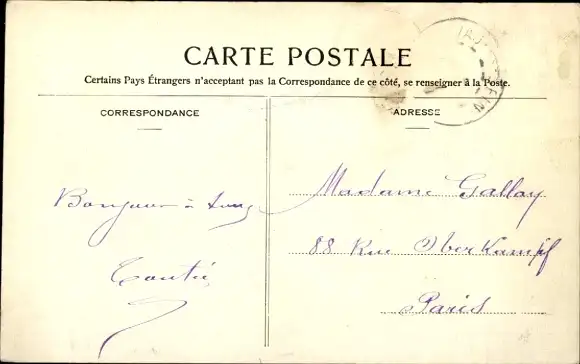 CARTE POSTALE
Certains Pays Étrangers n'acceptant pas la Correspondance de ce côté, se renseigner à la Poste.
CORRESPONDANCE
Bonjour à tous
ADRESSE
Madame Gallay
88 Rue Oberkampf
Paris